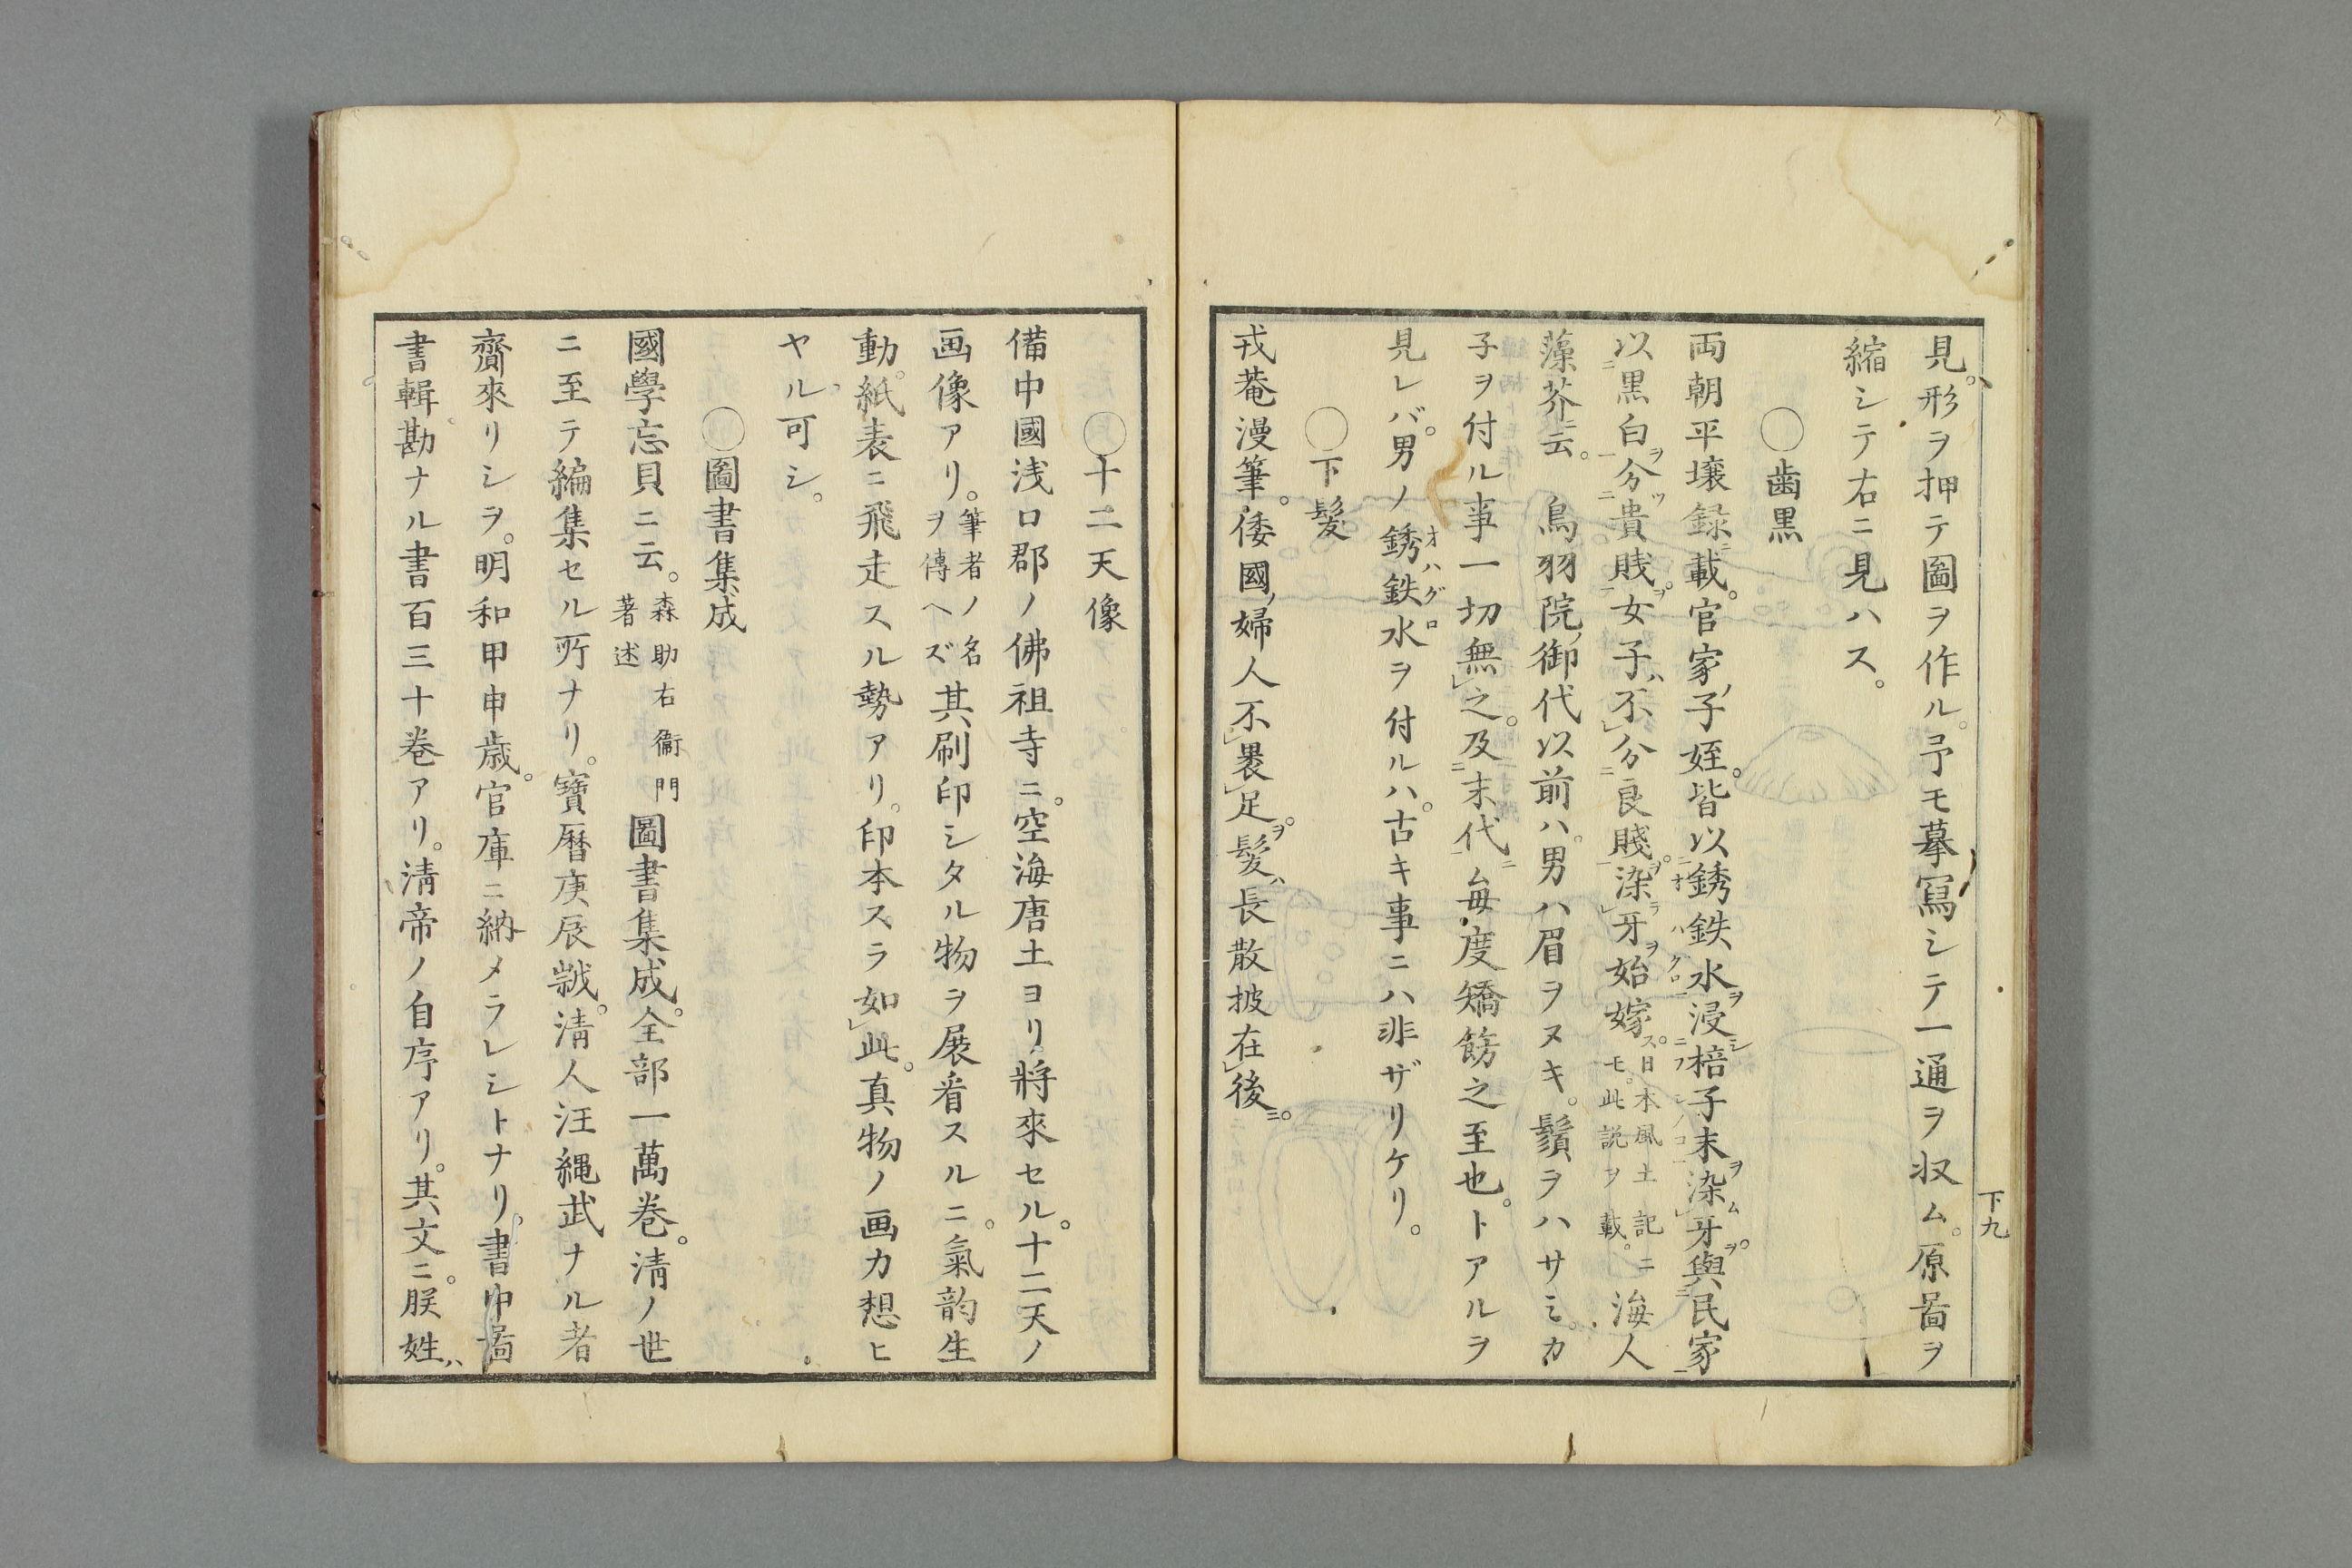 見。形ヲ押テ圖ヲ作ル。予モ摹寫シテ一通ヲ収ム。原啚ヲ
縮シテ右ニ見ハス。
〇歯黒
両朝平壌録載。官家子姪。皆以銹鉄水浸棓子末染牙與民家
以黒白分貴賎。女子不分良賤染牙始嫁 日本風土記ニモ此説ヲ載。 海人
藻芥云。鳥羽院御代以前ハ。男ハ眉ヲヌキ。鬚ヲハサミ。カ
子ヲ付ル事一切無之。及末代毎度矯餝之至也。トアルヲ
見レバ。男ノ銹鉄水ヲ付ルハ。古キ事ニハ非ザリケリ。
〇下髪
戎菴漫筆。倭國婦人不褁足。髪長散披在後。
下九
〇十二天像
備中國浅口郡ノ佛祖寺ニ。空海唐土ヨリ將來セル。十二天ノ
画像アリ。筆者ノ名ヲ傳ヘズ 其刷印シタル物ヲ展看スルニ。氣韵生
動。紙表ニ飛走スル勢アリ。印本スラ如此。真物ノ画力想ヒ
ヤル可シ。
〇圖書集成
國學忘貝ニ云。森助右衞門著述 圖書集成。全部一萬巻。淸ノ世
ニ至テ編集セル所ナリ。寶暦庚辰歳。淸人汪縄武ナル者
齎來リシヲ。明和甲申歳。官庫ニ納メラレシトナリ。書中啚
書輯勘ナル書百三十巻アリ。淸帝ノ自序アリ。其文ニ。朕姓